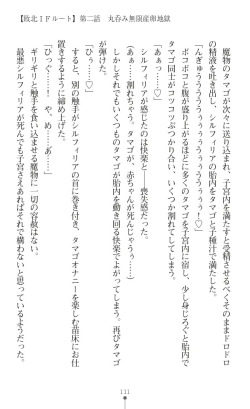 【敗北IFルート】第二話　丸呑み無限産卵地獄
魔物のタマゴが次々に送り込まれ、子宮内を満たすと受精させるべくそのままドロドロ
の精液を吐き出し、シルフィリアの胎内をタマゴと子種汁で満たした。
ボコボコと腹が盛り上がるほどに多くのタマゴを子宮に宿し、少し身じろぐと胎内で
タマゴ同士がコツコツぶつかり合い、いくつか割れてしまう。
「あぁっ……♡」
シルフィリアが感じたのは快楽と――喪失感だった。
「あぁ……割れちゃう。タマゴが、赤ちゃんが死んじゃうぅ……」
タマゴが胎内を動き回る快楽で上がってしまう。再びタマゴ
が弾けた。
「ひぅ……♡」
すると、別の触手がシルフィリアの首に巻き付き、タマゴオナニーを楽しむ苗床にお仕
置きするように締め上げる。
「ひっぐ……！　や、め……ぁ……」
ギリギリと触手を食い込ませる魔物に一切の容赦はない。
最悪シルフィリアが死んでも子宮さえあればそれで構わないと思っているようだった。
111